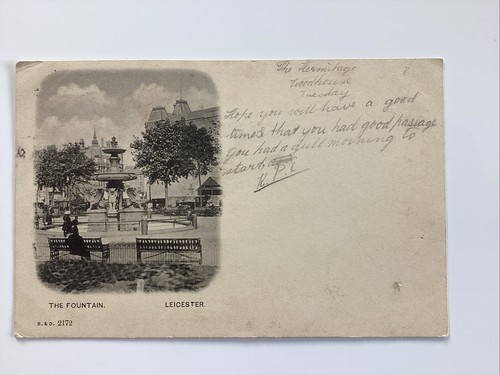 The Hermitage
Woodhouse
Tuesday
Hope you will have a good
time & that you had good passage
you had a dull morning to
start
THE FOUNTAIN. LEICESTER.
B. & D. 2172